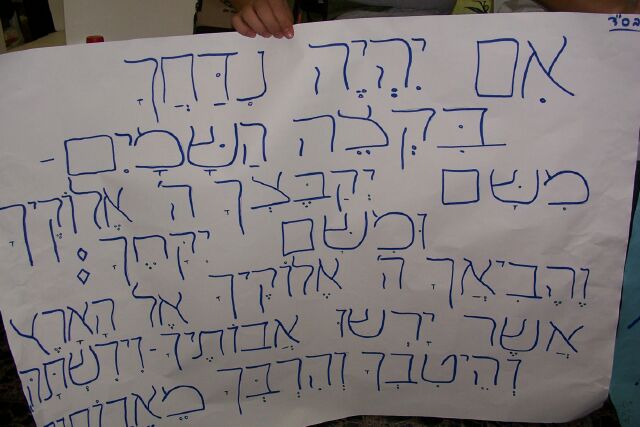 בס"ד
אִם יִהְיֶה נִדַּחֲךָ
בִּקְצֵה הַשָּׁמָיִם -
מִשָּׁם יְקַבֶּצְךָ ה' אֱלֹוקֶיךָ
וּמִשָּׁם יִקָּחֶךָ:
וֶהֱבִיאֲךָ ה' אֱלֹוקֶיךָ אֶל הָאָרֶץ
אֲשֶׁר יָרְשׁוּ אֲבוֹתֶיךָ - וִירִשְׁתָּהּ
וְהֵיטִבְךָ וְהִרְבְּךָ מֵאֲבוֹתֶיךָ